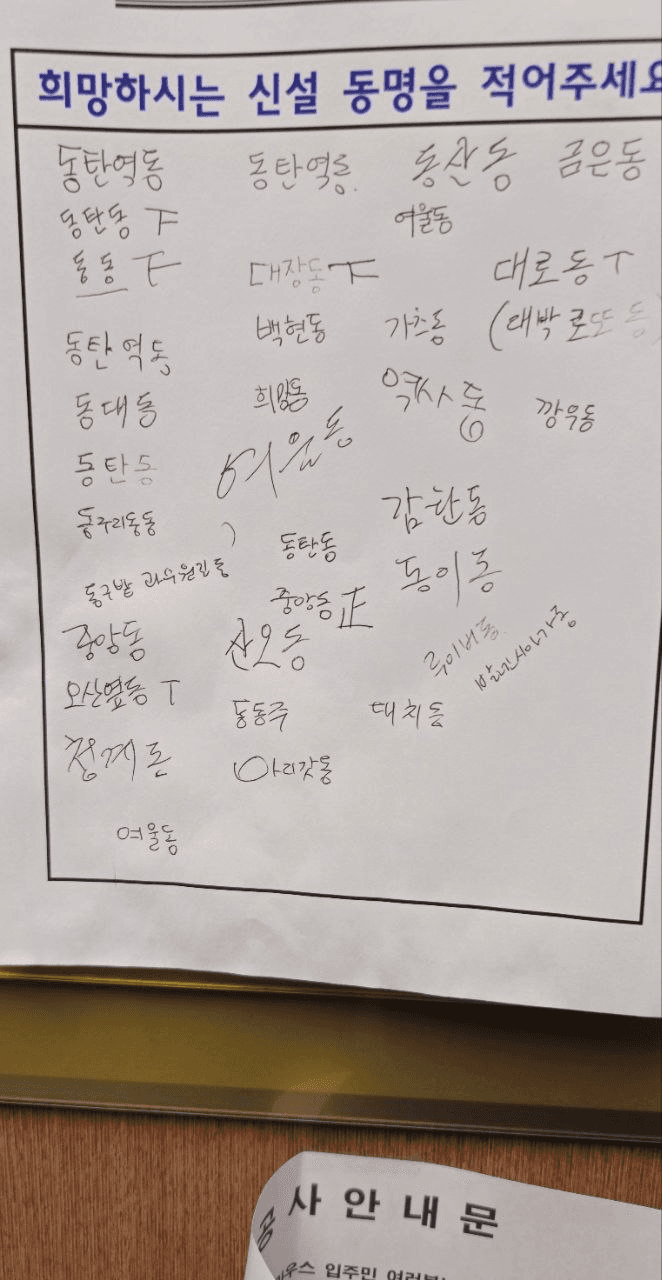 희망하시는 신설 동명을 적어주세요
동탄역동 동탄역동. 동산동 금은동
동탄동 丅 여울동
동동 下 대장동 丅 대로동 丅
동탄역동 백현동 가츠동 (대박로또동
동대동 희망동 역사동 깡우동
동탄동 여울동
동구리동동 감한동
동탄동 동이동
동구밭 과수원길동 중앙동 正
중앙동 산오동 루이비동. 발렌시아가동
오산옆동 丅 동동주 대치동
청계동 아리갓동
여울동
공사안내문
하우스 입주민 여러분